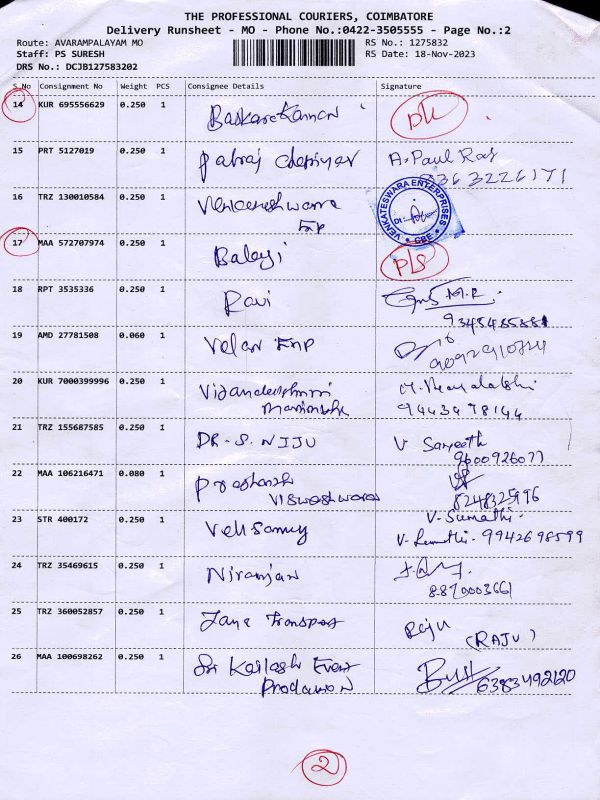 THE PROFESSIONAL COURIERS, COIMBATORE
Delivery Runsheet - MO - Phone No.:0422-3505555 - Page No.:2
Route: AVARAMPALAYAM MO RS No.: 1275832
Staff: PS SURESH RS Date: 18-Nov-2023
DRS No.: DCJB127583202
S.No Consignment No Weight PCS Consignee Details Signature
14 KUR 695556629 0.250 1 Baskarakannan DL
15 PRT 5127019 0.250 1 A. Paul Raj
16 TRZ 130010584 0.250 1 Venkateshwara
Enp
VENKATESWARA ENTERPRISES
CBE
17 MAA 572707974 0.250 1 Balaji DLS
18 RPT 3535336 0.250 1 Ravi M.R
19 AMD 27781508 0.060 1 Velan Enp
20 KUR 7000399996 0.250 1
9443478144
21 TRZ 155687585 0.250 1 DR. S. NIJU V Sangeeth
9600926077
22 MAA 106216471 0.080 1 Prashanth
Visweshwaran 8248325996
23 STR 400172 0.250 1 Vellsamy V. Sumathi.
V. Sumathi. 9942698599
24 TRZ 35469615 0.250 1 Niranjan
8870003661
25 TRZ 360052857 0.250 1 Jana Transport Raju
(RAJU)
26 MAA 100698262 0.250 1 Sri Kailash Event
Prodawon 6383492120
2